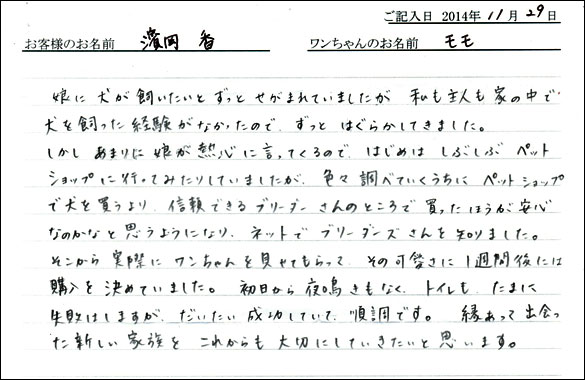 ご記入日 2014年 11月 29日
お客様のお名前 濱岡 香 ワンちゃんのお名前 モモ
娘に犬が飼いたいとずっとせがまれていましたが 私も主人も家の中で
犬を飼った経験がなかったので、ずっとはぐらかしてきました。
しかしあまりに娘が熱心に言ってくるので、はじめはしぶしぶペット
ショップに行ってみたりしていましたが、色々調べていくうちにペットショップ
で犬を買うより、信頼できるブリーダーさんのところで買ったほうが安心
なのかなと思うようになり、ネットでブリーダーズさんを知りました。
そこから実際にワンちゃんを見せてもらって、その可愛さに1週間後には
購入を決めていました。 初日から夜鳴きもなく、トイレも、たまに
失敗はしますが、だいたい成功していて、順調です。 縁あって出会っ
た新しい家族を これからも大切にしていきたいと思います。